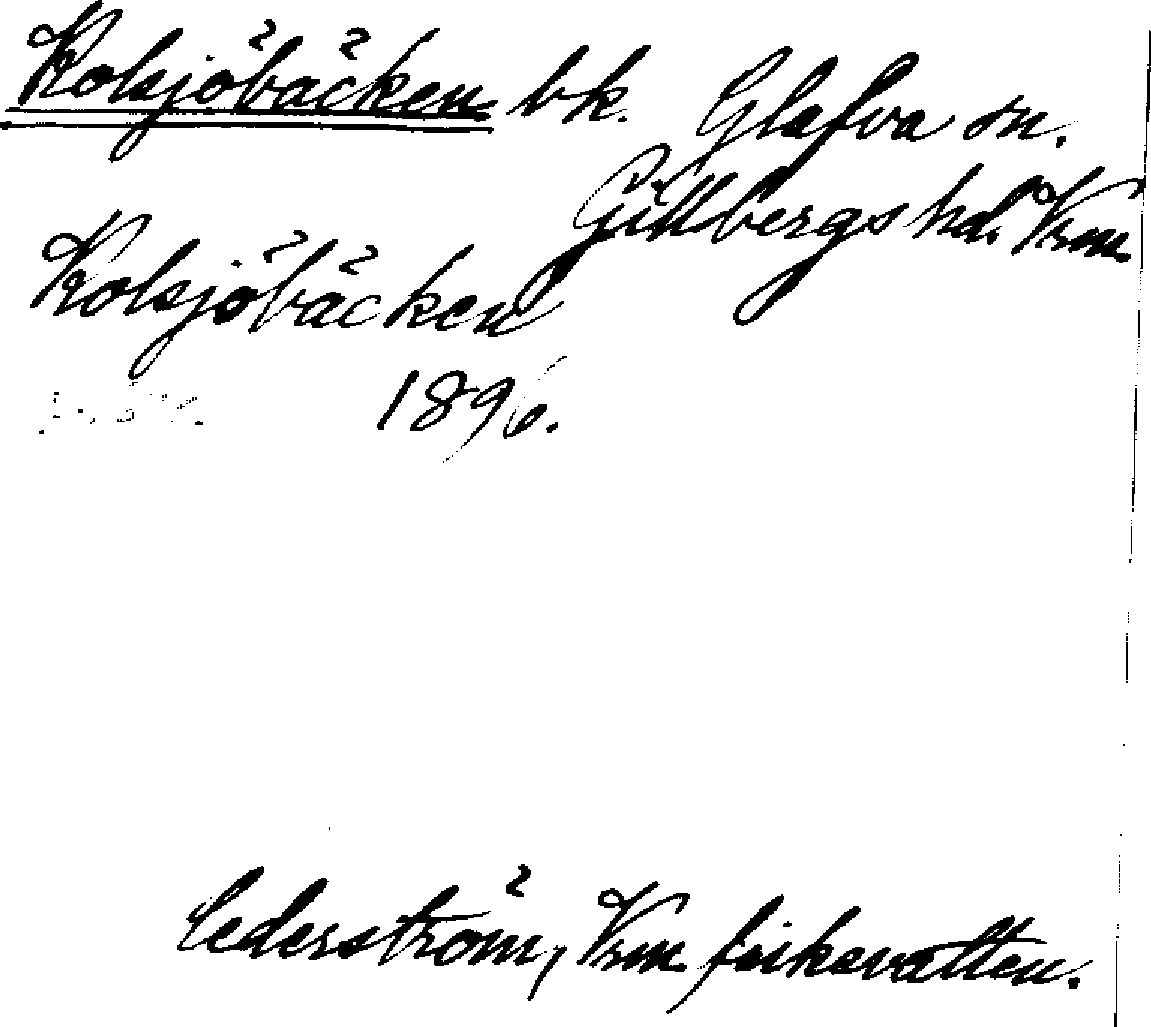 Kolsjöbäcken bk. Glafva sn.
Gillbergs hd. Vrm.
Kolsjöbäcken
1896.
Cederström, Vrm fiskevatten.